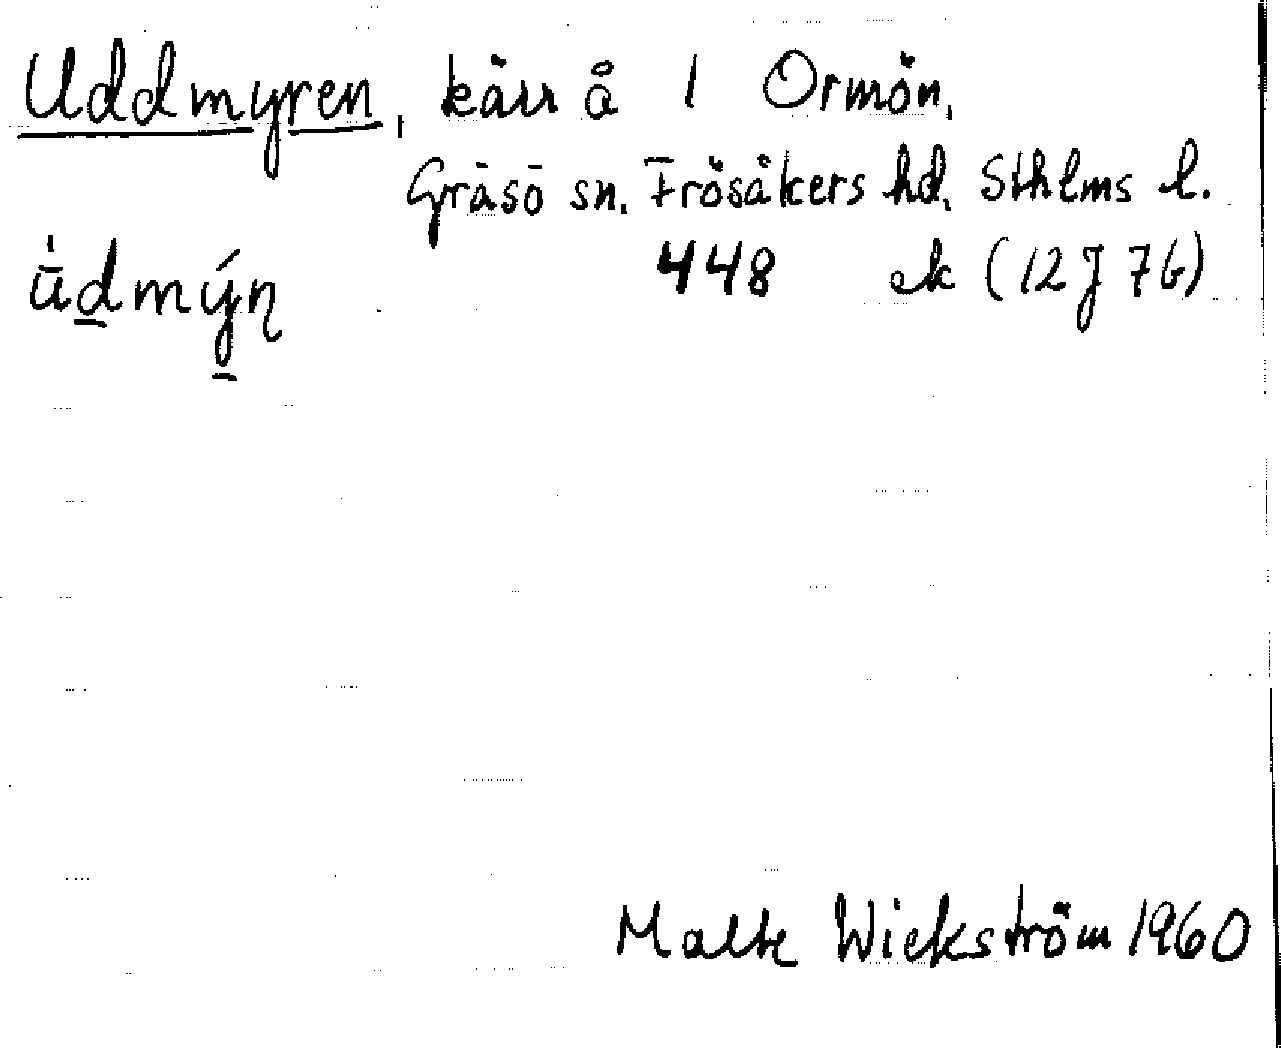 Uddmyren, kärr å 1 Ormön,
Gräsö sn. Frösåkers hd. Sthlms l.
ŭ̍d̲mý̲ɳ 448 ek (12 J 7b)
Malte Wickström 1960